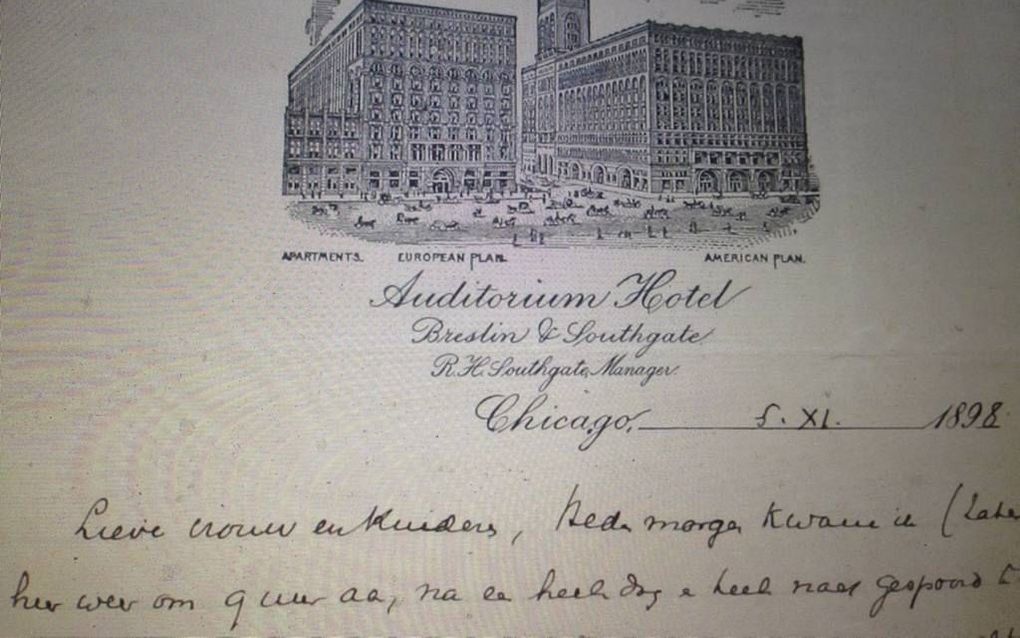 APARTMENTS. EUROPEAN PLAN. AMERICAN PLAN.
Auditorium Hotel
Breslin & Southgate
R.H. Southgate, Manager.
Chicago, 5. XI. 1898
Lieve vrouw en kinders, Heden morgen kwam ik (Zater
hier weer om 9 uur aan, na een heele dag en heele nacht gespoord te